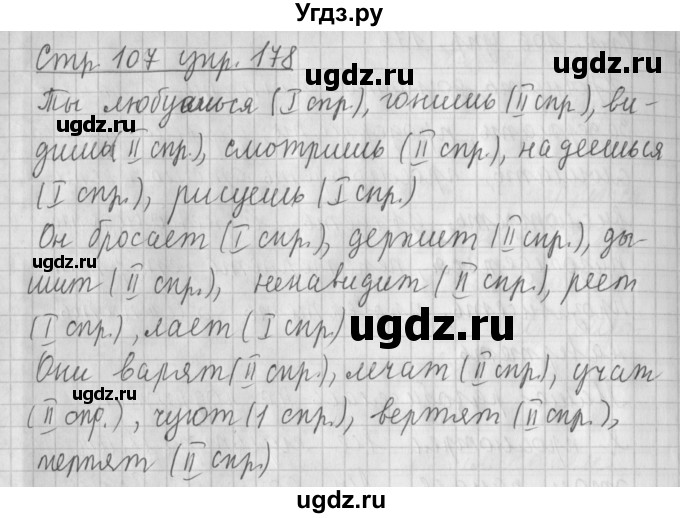 Угдз.ру
Стр. 107 упр. 178
ugdz.ru
Ты любуешься (I спр.), гонишь (II спр.), ви-
ugdz.ru
дишь (II спр.), смотришь (II спр.), надеешься
(I спр.), рисуешь (I спр.)
Он бросает (I спр.), держит (II спр.), ды-
ugdz.ru
шит (II спр.), ненавидит (II спр.), реет
(I спр.), лает (I спр.)
ugdz.ru
Они варят (II спр.), лечат (II спр.), учат
ugdz.ru
(II спр.), чуют (1 спр.), вертят (II спр.),
терпят (II спр.)
ugdz.ru
ugdz.ru